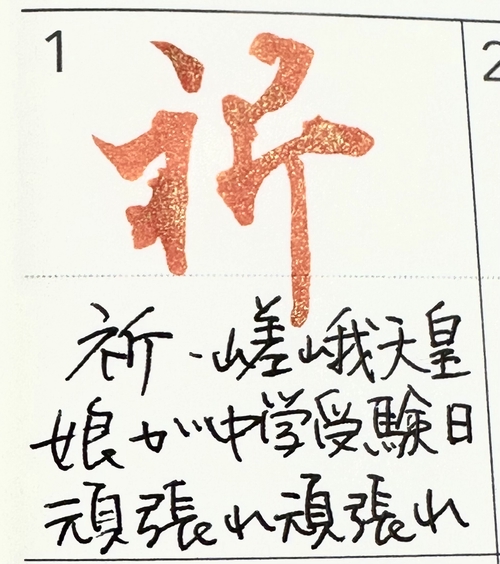 1
2
祈
祈・嵯峨天皇
娘が中学受験日
頑張れ頑張れ